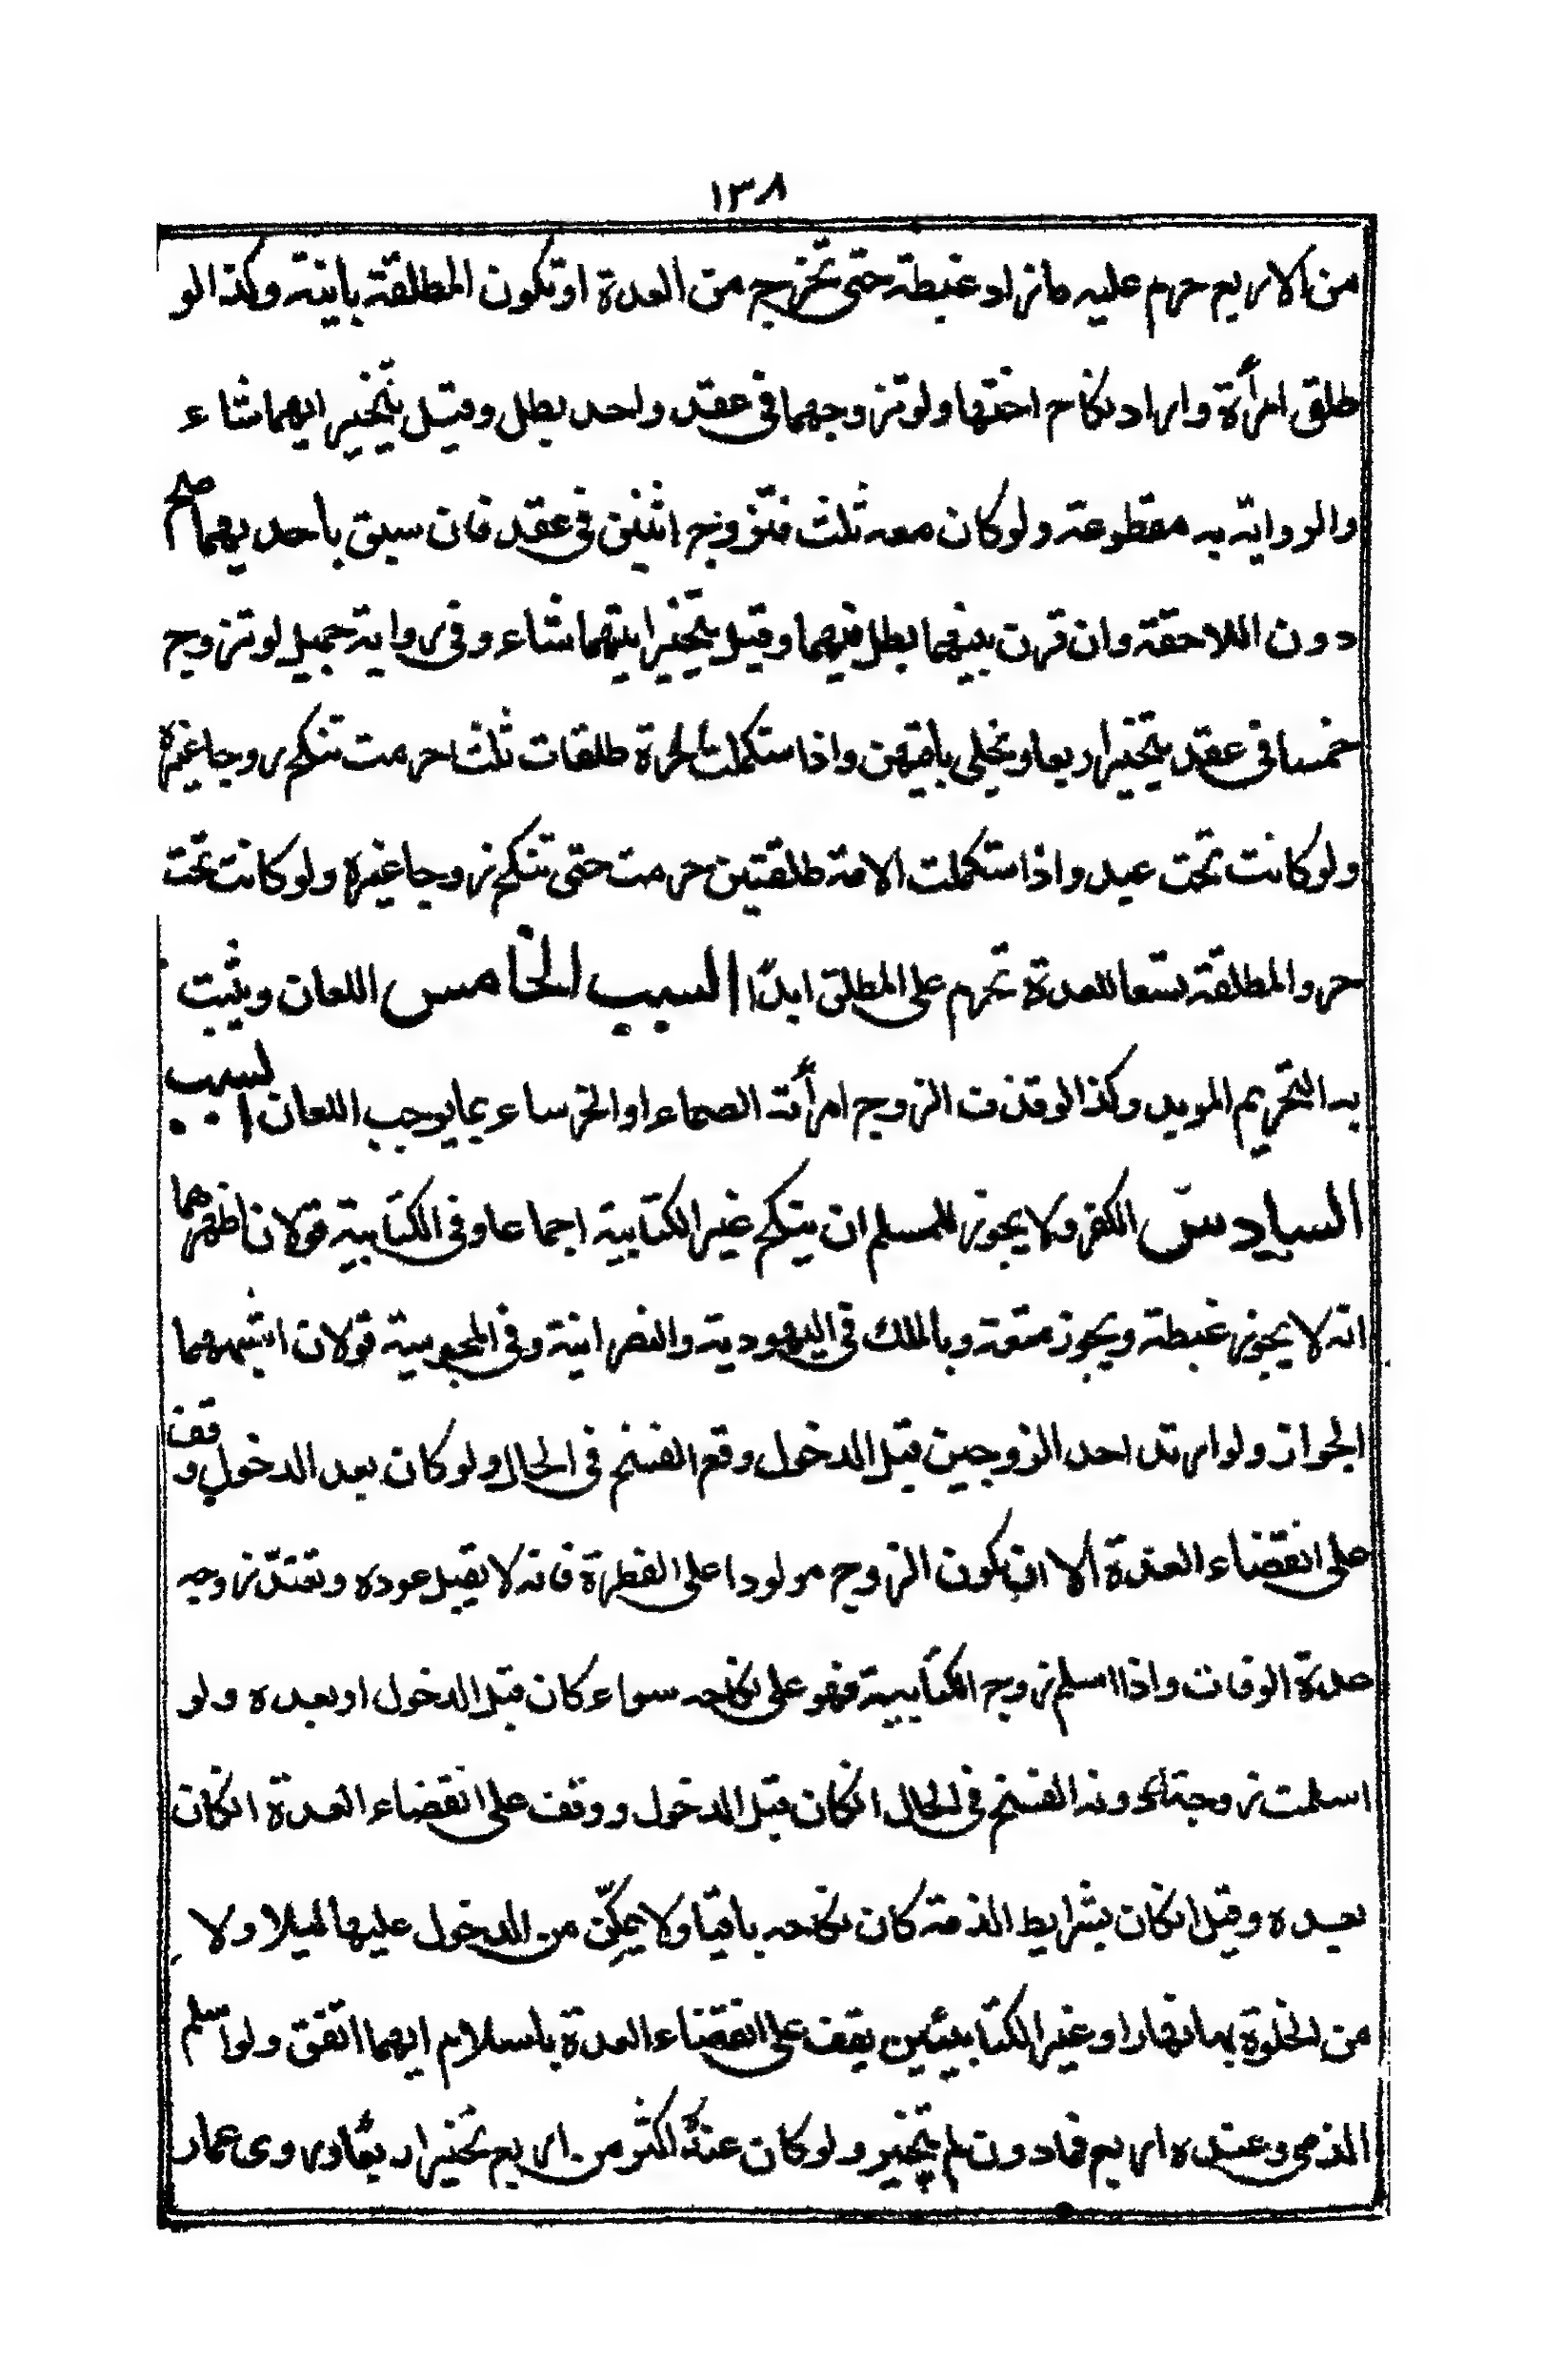 ١٣٨
من الاربع حرم عليه مازاد غبطة حتى تخرج من العدة او تكون المطلقة باينة وكذا لو
طلق امرأة واراد نكاح اختها ولو تزوجهما فى عقد واحد بطل وقيل يتخير ايهما شاء
والرواية به مقطوعة ولو كان معه ثلث فتزوج اثنين فى عقد فان سبق باحديهما صح
دون اللاحقة وان قرن بينهما بطل فيهما وقيل يتخير ايتهما شاء وفى رواية جميل لو تزوج
خمسا فى عقد يتخير اربعا ويخلى باقيهن واذا ستكملت الحرة طلقات ثلث حرمت تنكح زوجا غيره
ولو كانت تحت عبد واذا ستكملت الامة طلقتين حرمت حتى تنكح زوجا غيره ولو كانت تحت
حر والمطلقة تسعا للعدة تحرم على المطلق ابدًا السبب الخامس اللعان ويثبت
به التحريم الموبد وكذا لو قذف الزوج امرأته الصماء او الخرساء بما يوجب اللعان السبب
السادس الكفر ولا يجوز للمسلم ان ينكح غير الكتابية اجماعا وفى الكتابية قولان اظهرهما
انه لا يجوز غبطة ويجوز متعة وبالملك فى اليهودية والنصرانية وفى المجوسية قولان اشبههما
الجواز ولو ارتد احد الزوجين قبل الدخول وقع الفسخ فى الحال ولو كان بعد الدخول وقف
على انقضاء العدة الا ان يكون الزوج مولودا على الفطرة فانه لا يقبل عوده وتعتدّ زوجه
عدة الوفات واذا اسلم زوج الكتابية فهو على نكاحه سواء كان قبل الدخول او بعده ولو
اسلمت زوجته دونه الفسخ فى الحال انكان قبل الدخول ووقف على انقضاء العدة انكان
بعده وقيل انكان بشرايط الذمة كان نكاحه باقيا ولا يمكّن من الدخول عليها ليلا ولا
من الخلوة بها نهارا وغير الكتابيين يقف على انقضاء العدة باسلام ايهما اتفق ولو اسلم
الذمى وعنده اربع فمادون لم يتخير ولو كان عنده اكثر من اربع تخير اربعًا وروى عمار